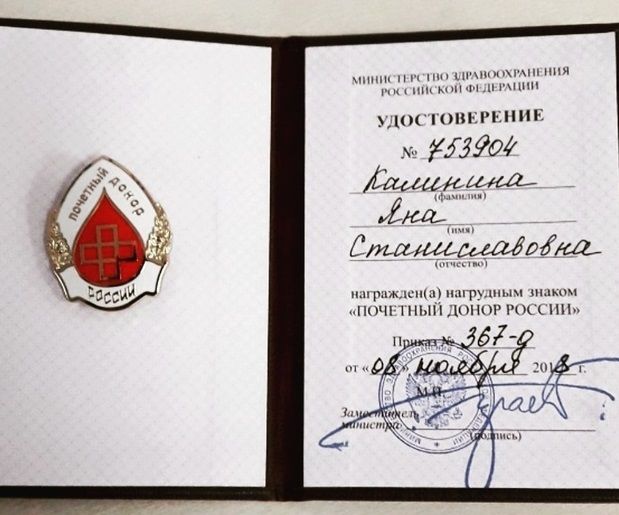 почетный донор
россии
МИНИСТЕРСТВО ЗДРАВООХРАНЕНИЯ
РОССИЙСКОЙ ФЕДЕРАЦИИ
УДОСТОВЕРЕНИЕ
№ 753904
Калинина
(фамилия)
Яна
(имя)
Станиславовна
(отчество)
награжден(а) нагрудным знаком
«ПОЧЕТНЫЙ ДОНОР РОССИИ»
Приказ № 367-д
от «08» ноября 2018 г.
М.П.
Заместитель
министра
(подпись)